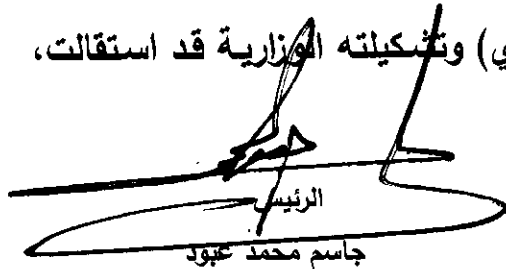 ي) وتشكيلته الوزارية قد استقالت،
الرئيس
جاسم محمد عبود